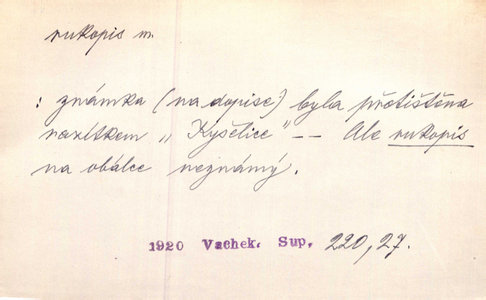 rukopis m.
: známka (na dopise) byla přetištěna
razítkem „Kyšelice" -- Ale rukopis
na obálce neznámý.
1920 Vachek, Sup, 220,27.